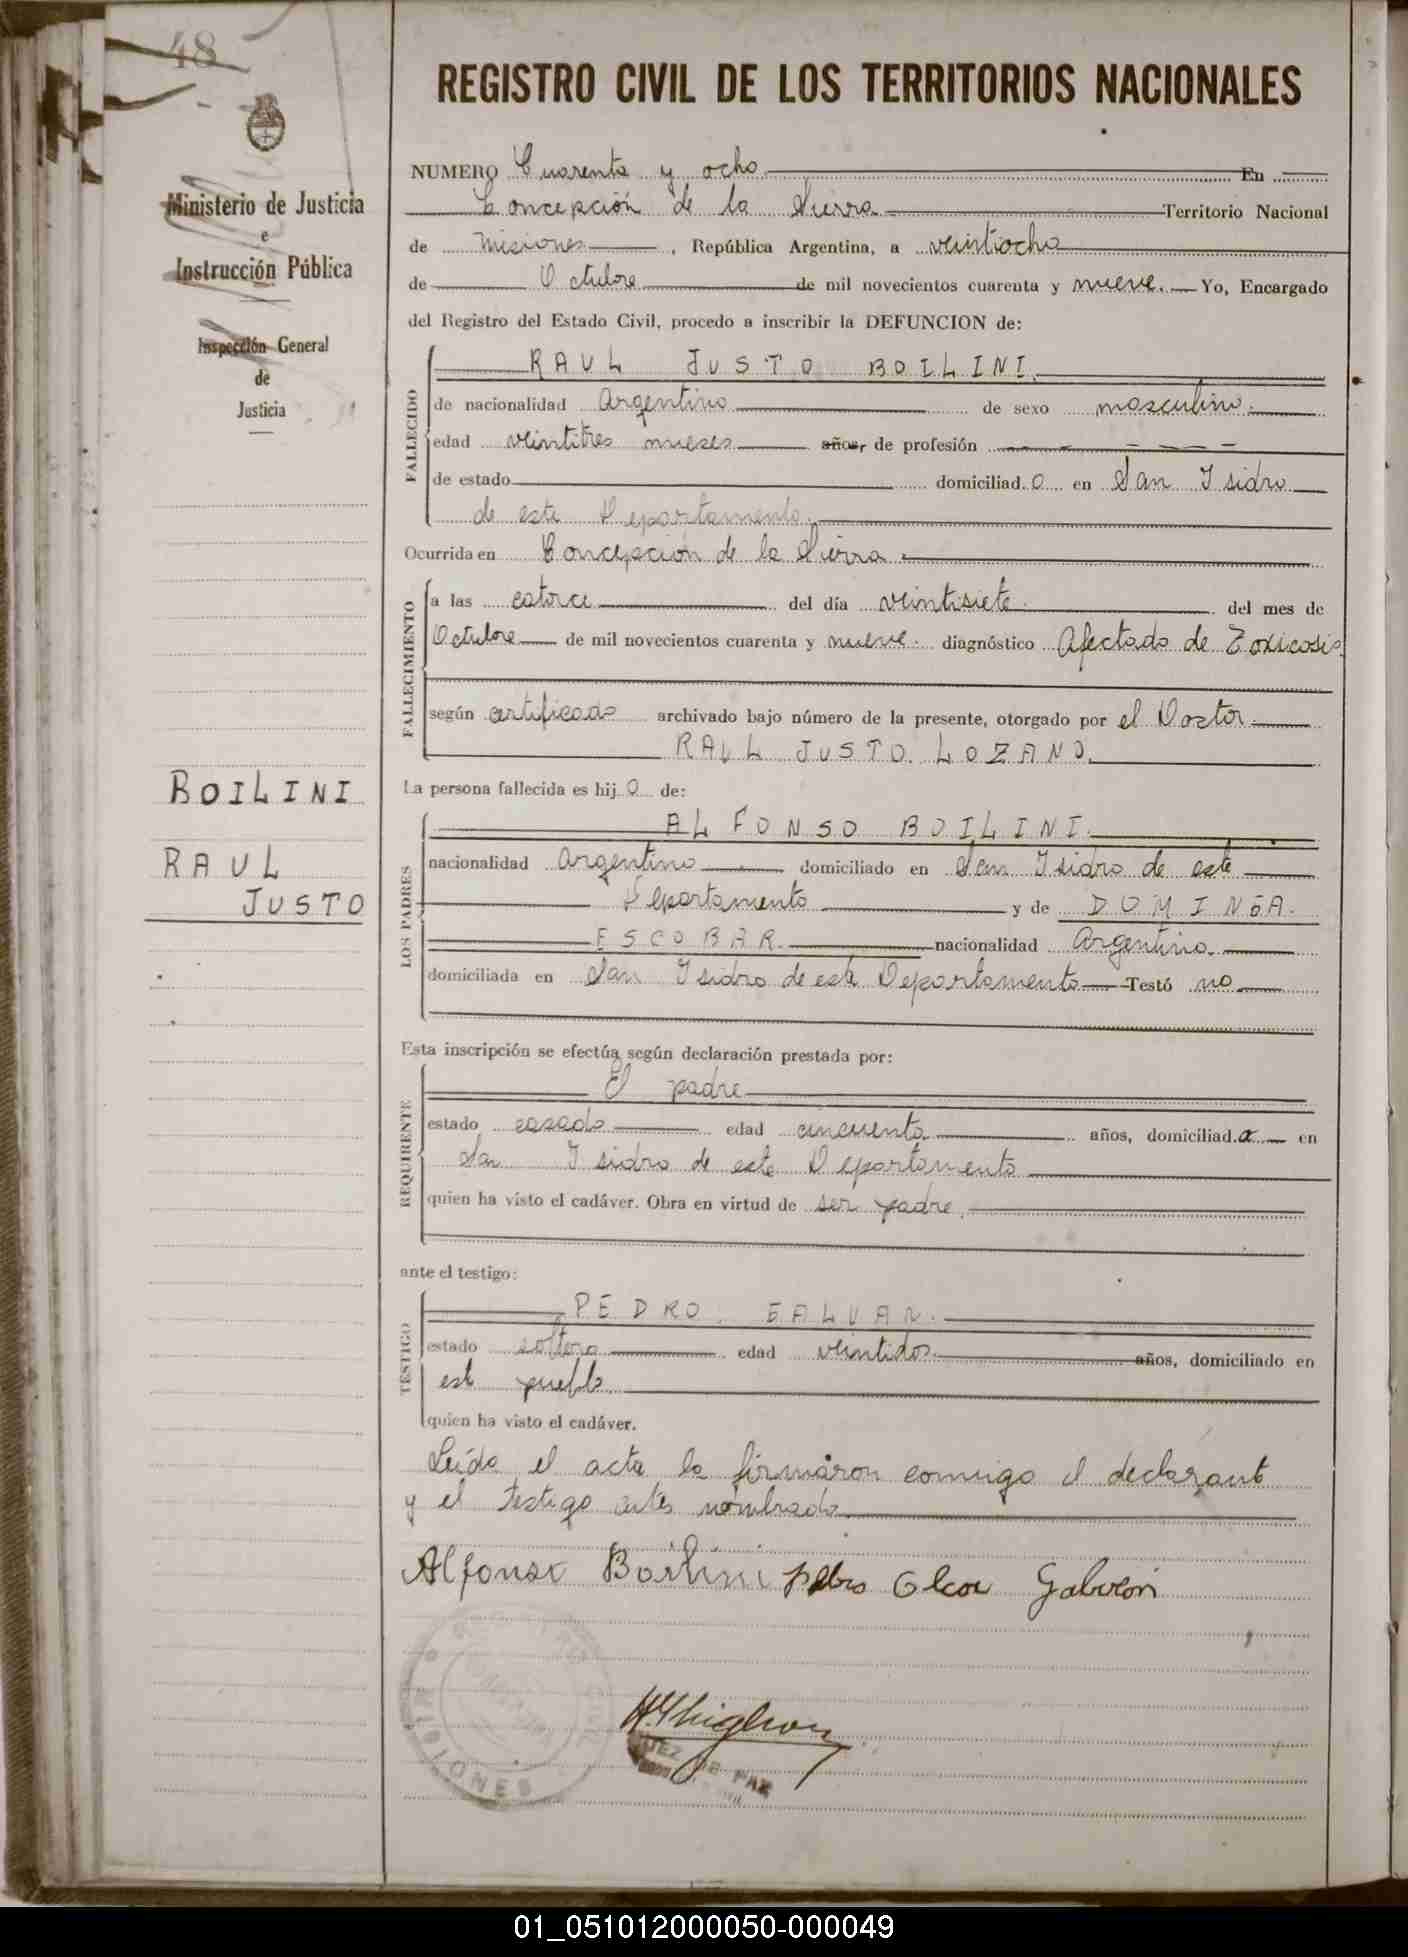 48
REGISTRO CIVIL DE LOS TERRITORIOS NACIONALES
Ministerio de Justicia
e
Instrucción Pública
Inspección General
de
Justicia
BOILINI
RAUL
JUSTO
NUMERO Cuarenta y ocho En
Concepción de la Sierra Territorio Nacional
de Misiones, República Argentina, a veintiocho
de Octubre de mil novecientos cuarenta y nueve. Yo, Encargado
del Registro del Estado Civil, procedo a inscribir la DEFUNCION de:
FALLECIDO
RAUL JUSTO BOILINI.
de nacionalidad Argentino de sexo masculino.
edad veintitres meses años, de profesión
de estado domiciliad.o en San Isidro
de este Departamento.
Ocurrida en Concepción de la Sierra
FALLECIMIENTO
a las catorce del día veintisiete. del mes de
Octubre de mil novecientos cuarenta y nueve. diagnóstico Afectado de Toxicosis.
según certificado archivado bajo número de la presente, otorgado por el Doctor
RAUL JUSTO LOZANO.
La persona fallecida es hijo de:
LOS PADRES
ALFONSO BOILINI.
nacionalidad Argentino domiciliado en San Isidro de este
Departamento y de DOMINGA.
ESCOBAR. nacionalidad Argentina.
domiciliada en San Isidro de este Departamento Testó no
Esta inscripción se efectúa según declaración prestada por:
REQUIRENTE
El padre
estado casado edad cincuenta años, domiciliad.o en
San Isidro de este Departamento
quien ha visto el cadáver. Obra en virtud de ser padre.
ante el testigo:
TESTIGO
PEDRO. GALVAN.
estado soltero edad veintidos años, domiciliado en
este pueblo.
quien ha visto el cadáver.
Leída el acta la firmáron conmigo el declarante
y el testigo antes nombrado
Alfonso Boilini Pedro Galván
REGISTRO CIVIL
MISIONES
JUEZ DE PAZ
01_051012000050-000049